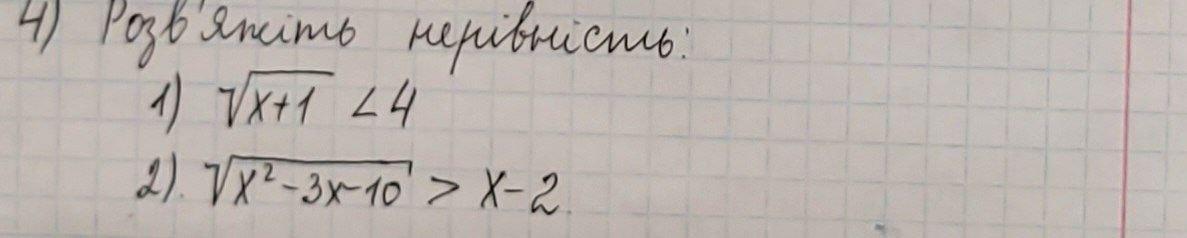 4) Розв'яжіть нерівність:
1) √x+1 < 4
2). √x²-3x-10 > x-2.